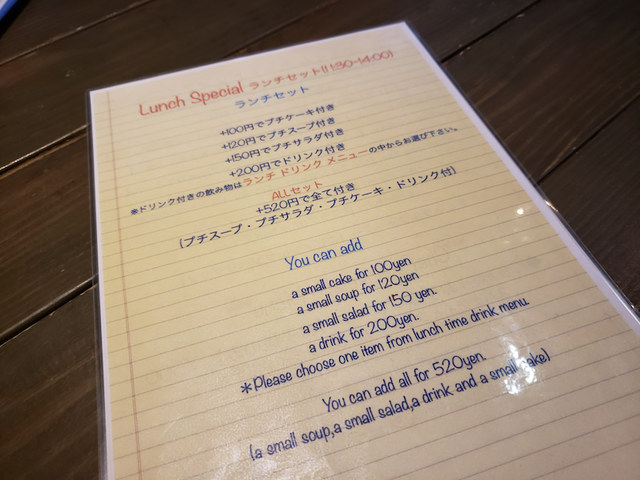 Lunch Special ランチセット(11:30-14:00)
ランチセット
+100円でプチケーキ付き
+120円でプチスープ付き
+150円でプチサラダ付き
+200円でドリンク付き
※ドリンク付きの飲み物はランチ ドリンク メニューの中からお選び下さい。
ALLセット
+520円で全て付き
(プチスープ・プチサラダ・プチケーキ・ドリンク付)
You can add
a small cake for 100yen
a small soup for 120yen
a small salad for 150 yen.
a drink for 200yen.
*Please choose one item from lunch time drink menu.
You can add all for 520yen.
(a small soup,a small salad,a drink and a small cake)